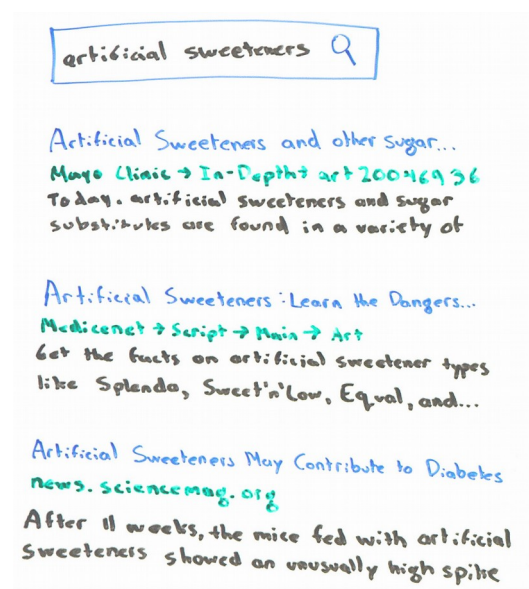 artificial sweeteners
Artificial Sweeteners and other sugar...
Mayo Clinic → In-Depth → art 20046936
Today. artificial sweeteners and sugar
substitutes are found in a variety of
Artificial Sweeteners: Learn the Dangers...
Medicenet → Script → Main → Art
Get the facts on artificial sweetener types
like Splenda, Sweet'n'Low, Equal, and...
Artificial Sweeteners May Contribute to Diabetes
news.sciencemag.org
After 11 weeks, the mice fed with artificial
sweeteners showed an unusually high spike